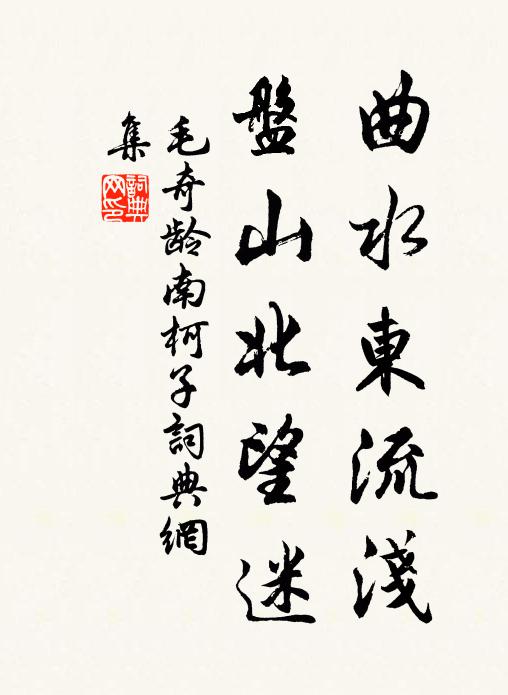 曲水東流淺
盤山北望迷
毛奇龄南柯子詞典網
集
詞典网印